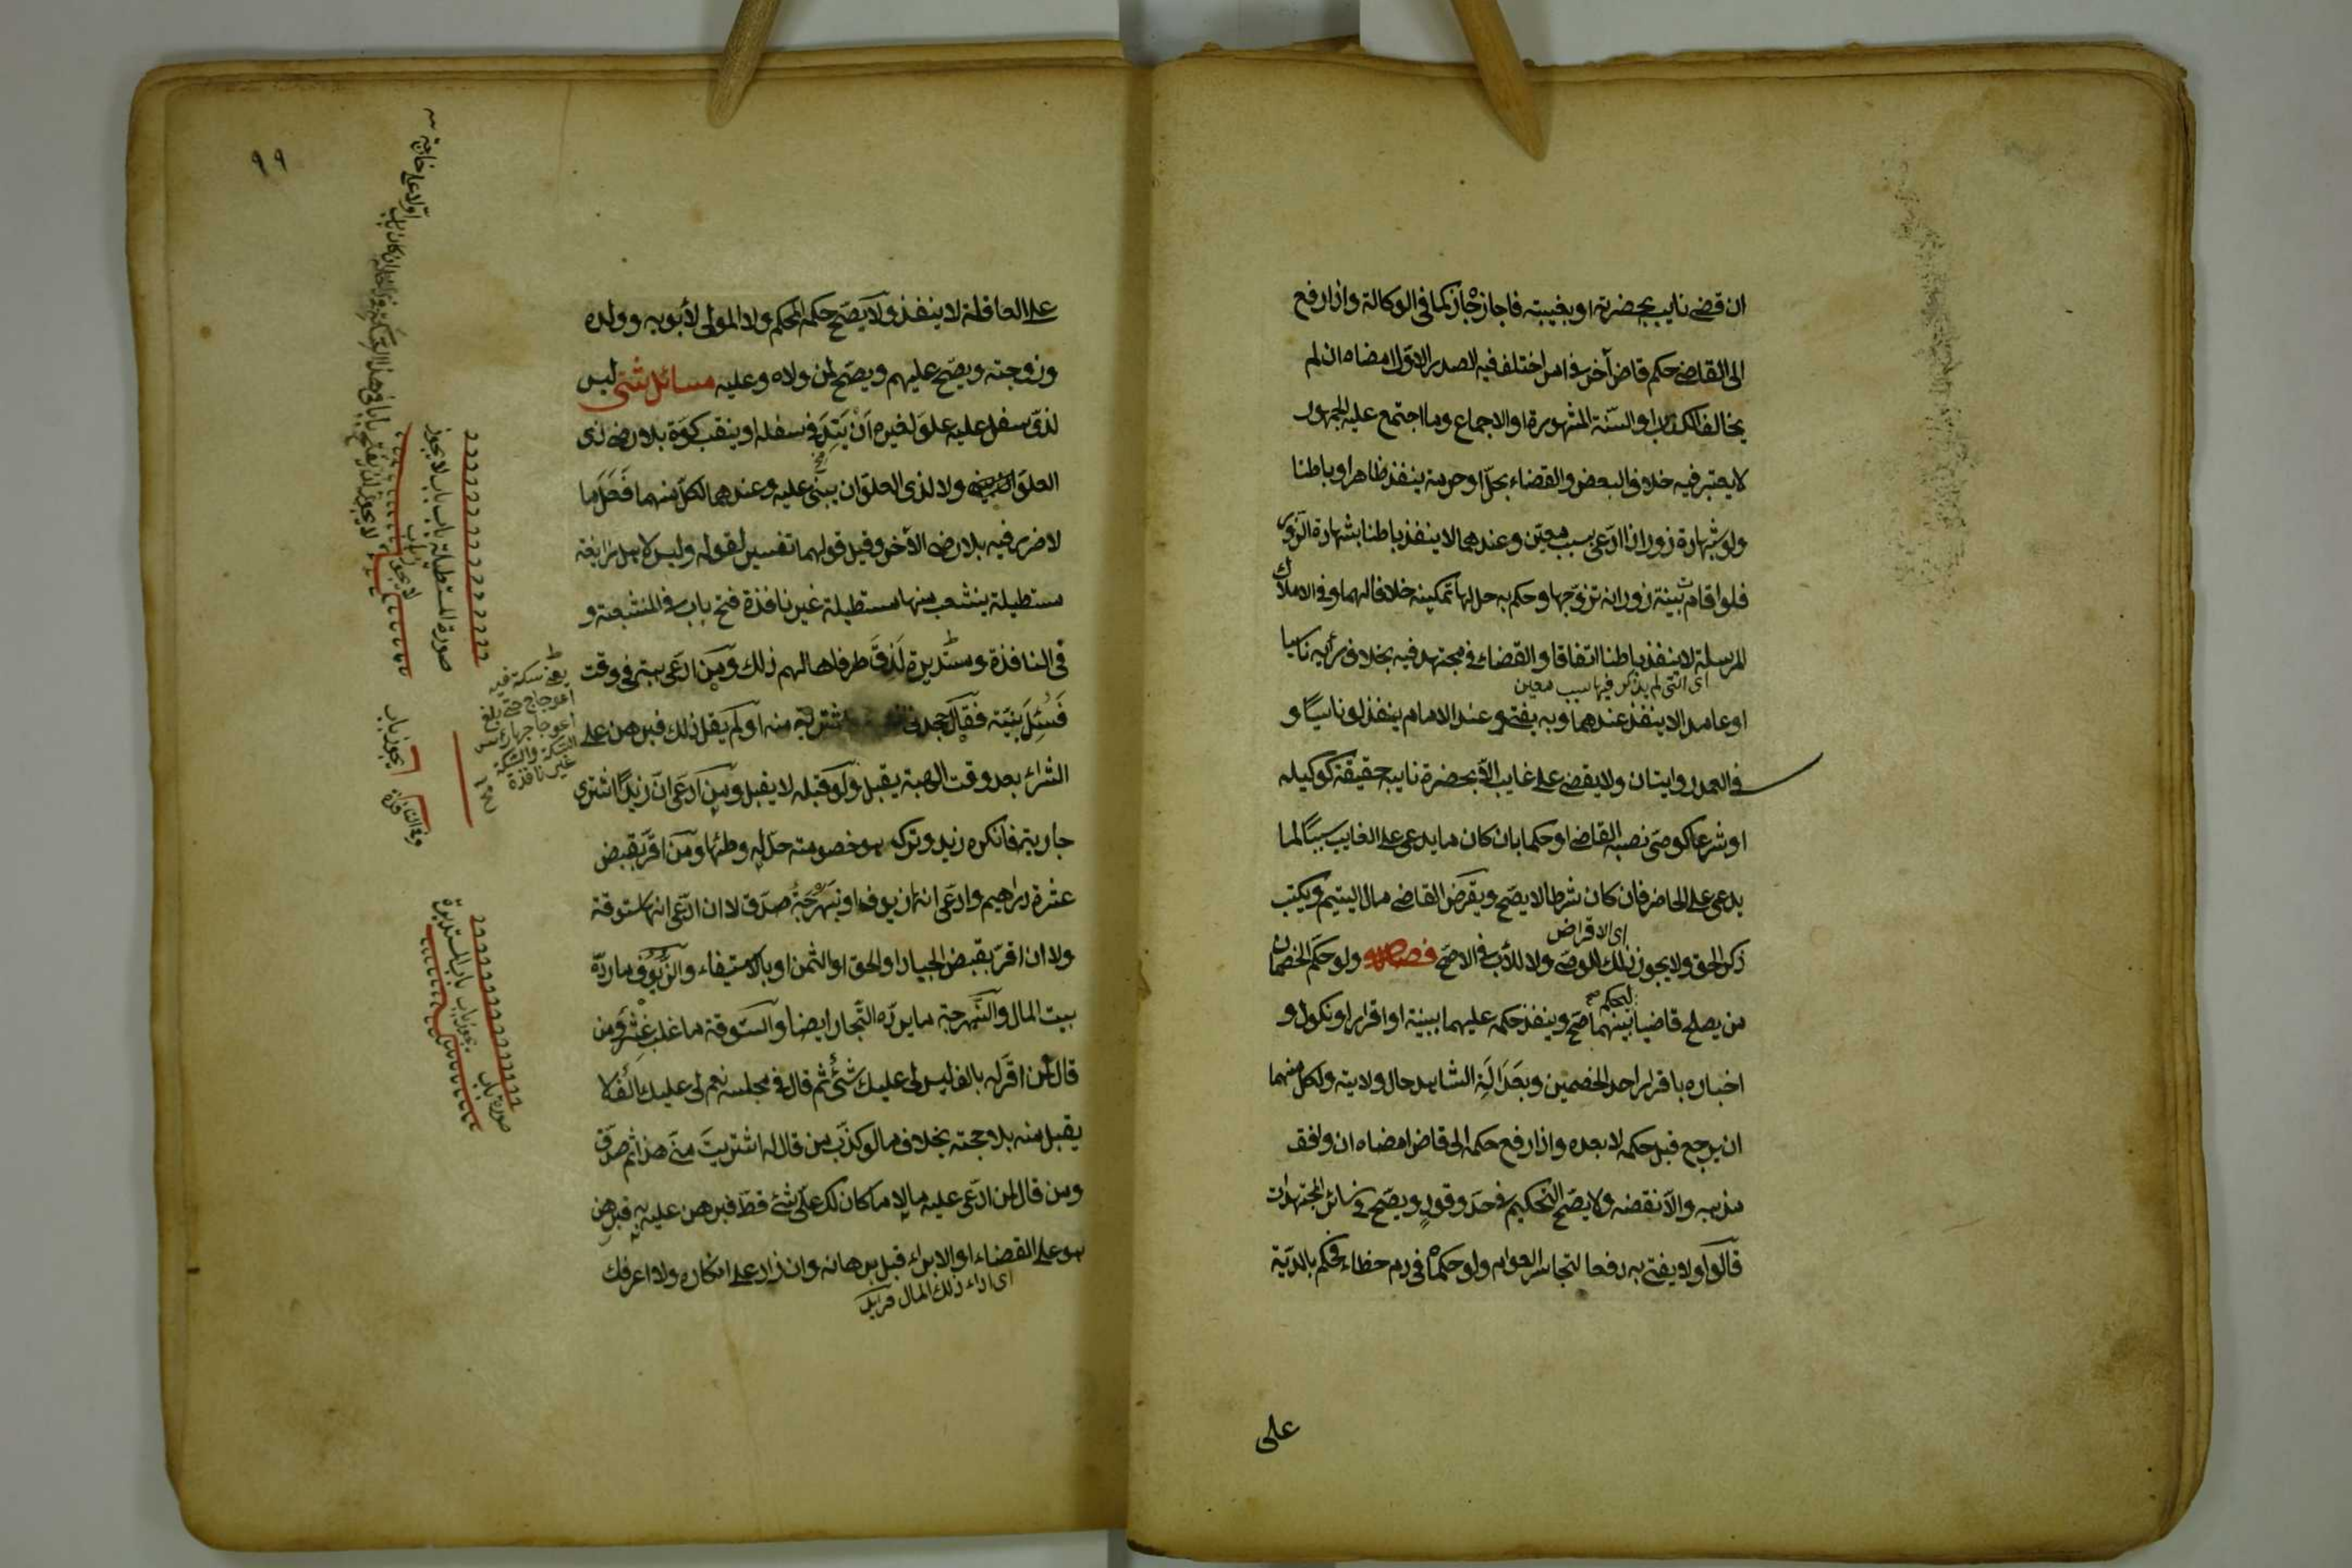 ان قضى نايب بحضرته او بغيبته فاجازه جاز كما فى الوكالة واذا رفع
الى القاضى حكم قاض آخر فى امر اختلف فيه الصدر الاوّل امضاه ان لم
يخالف الكتاب او السنّة المشهورة او الاجماع وما اجتمع عليه الجمهور
لا يعتبر فيه خلاف البعض والقضاء بحلّ او حرمة ينفذ ظاهرا وباطنا
ولو بشهادة زور اذا ادّعى بسبب معيّن وعندهما لا ينفذ باطنا بشهادة الزّور
فلو اقامت بينة زور انه تزوّجها وحكم به حل لها تمكينه خلافا لهما وفى الاملاك
المرسلة لا ينفذ باطنا اتفاقا والقضاء فى مجتهد فيه بخلاف رأيه ناسيا
اى التى لم يذكر فيها سبب معين
او عامدا لا ينفذ عندهما وبه يفتى وعند الامام ينفذ لو ناسيًا و
فى العمد روايتان ولا يقضى على غايب الّا بحضرة نايبه حقيقة كوكيله
او شرعا كوصى نصبه القاضى او حكما بان كان ما يدعى على الغايب سببًا لما
يدعى على الحاضر فان كان شرطا لا يصحّ ويقرض القاضى مال اليتيم ويكتب
اى الاقراض
ذكر الحق ولا يجوز ذلك للوصى ولا للأب فى الاصحّ فصل ولو حكّم الخصمان
من يصلح قاضيا ليحكم بينهما صحّ وينفذ حكمه عليهما ببينة او اقرار او نكول و
اخباره باقرار احد الخصمين وبعدالة الشاهد حال ولايته ولكل منهما
ان يرجع قبل حكمه لا بعده واذا رفع حكمه الى قاض امضاه ان وافق
مذهبه والّا نقضه ولا يصّح التحكيم فى حدّ وقود ويصّح فى سائر المجتهدات
قالوا ولا يفتى به دفعا لتجاسر العوام ولو حكماه فى دم خطاء فحكم بالديّة
على
٩٩
على العاقلة لا ينفذ ولا يصّح حكم المحكم ولا المولى لأبويه وولده
وزوجته ويصّح عليهم ويصّح لمن ولاه وعليه مسائل شتى ليس
لذى سفل عليه علوّ لغيره ان يتد فى سفله او ينقب كوّة بلا رضى ذى
العلوّ ولا لذى العلوّ ان يبنى عليه وعندهما لكلّ منهما فعل ما
لا ضرر فيه بلا رضى الآخر وقيل قولهما تفسير لقوله وليس لاهل زايغة
مستطيلة ينشعب منها مستطيلة غير نافذة فتح باب فى المنشعبة و
فى النافذة ومستديرة لذق طرفاها لهم ذلك ومن ادّعى هبة فى وقت
فسئل بينة فقال جحدنى فاشتريته منه او لم يقل ذلك فبرهن على
الشراء بعد وقت الهبة يقبل ولو قبله لا يقبل ومن ادعى انّ زيدًا اشترى
جاريته فانكره زيد وتركه هو خصومته حلّ له وطئها ومن اقرّ بقبض
عشرة دراهيم وادّعى انها زيوف او نبهرجة صدّق لا ان ادّعى انها ستوقة
ولا ان اقرّ بقبض الجياد او الحق او الثمن او بالاستيفاء والزّيوف ما ردّه
بيت المال والنّبهرجة ما يردّه التّجار ايضا والستّوقة ما غلب غشّه ومن
قال لمن اقرّ له بالف ليس لى عليك شئ ثم قال فى مجلسه نعم لى عليك الف لا
يقبل منه بلا حجة بخلاف ما لو كذّب من قال له اشتريت منّى هذا ثم صدّق
ومن قال لمن ادّعى عليه مالا ما كان لك علىّ شئ قطّ فبرهن عليه به فبرهن
هو على القضاء او الابراء قبل برهانه وان زاد على انكاره ولا اعرفك
اى اداء ذلك المال
يعنى سكة فيه
اعوجاج حتى بلغ
اعوجاجها رأس
السّكة والسّكة
غير نافذة
صورة المستطيلة باب باب لا يجوز
لا يجوز باب
يجوز باب
يجوز باب باب المستديرة
صورة باب